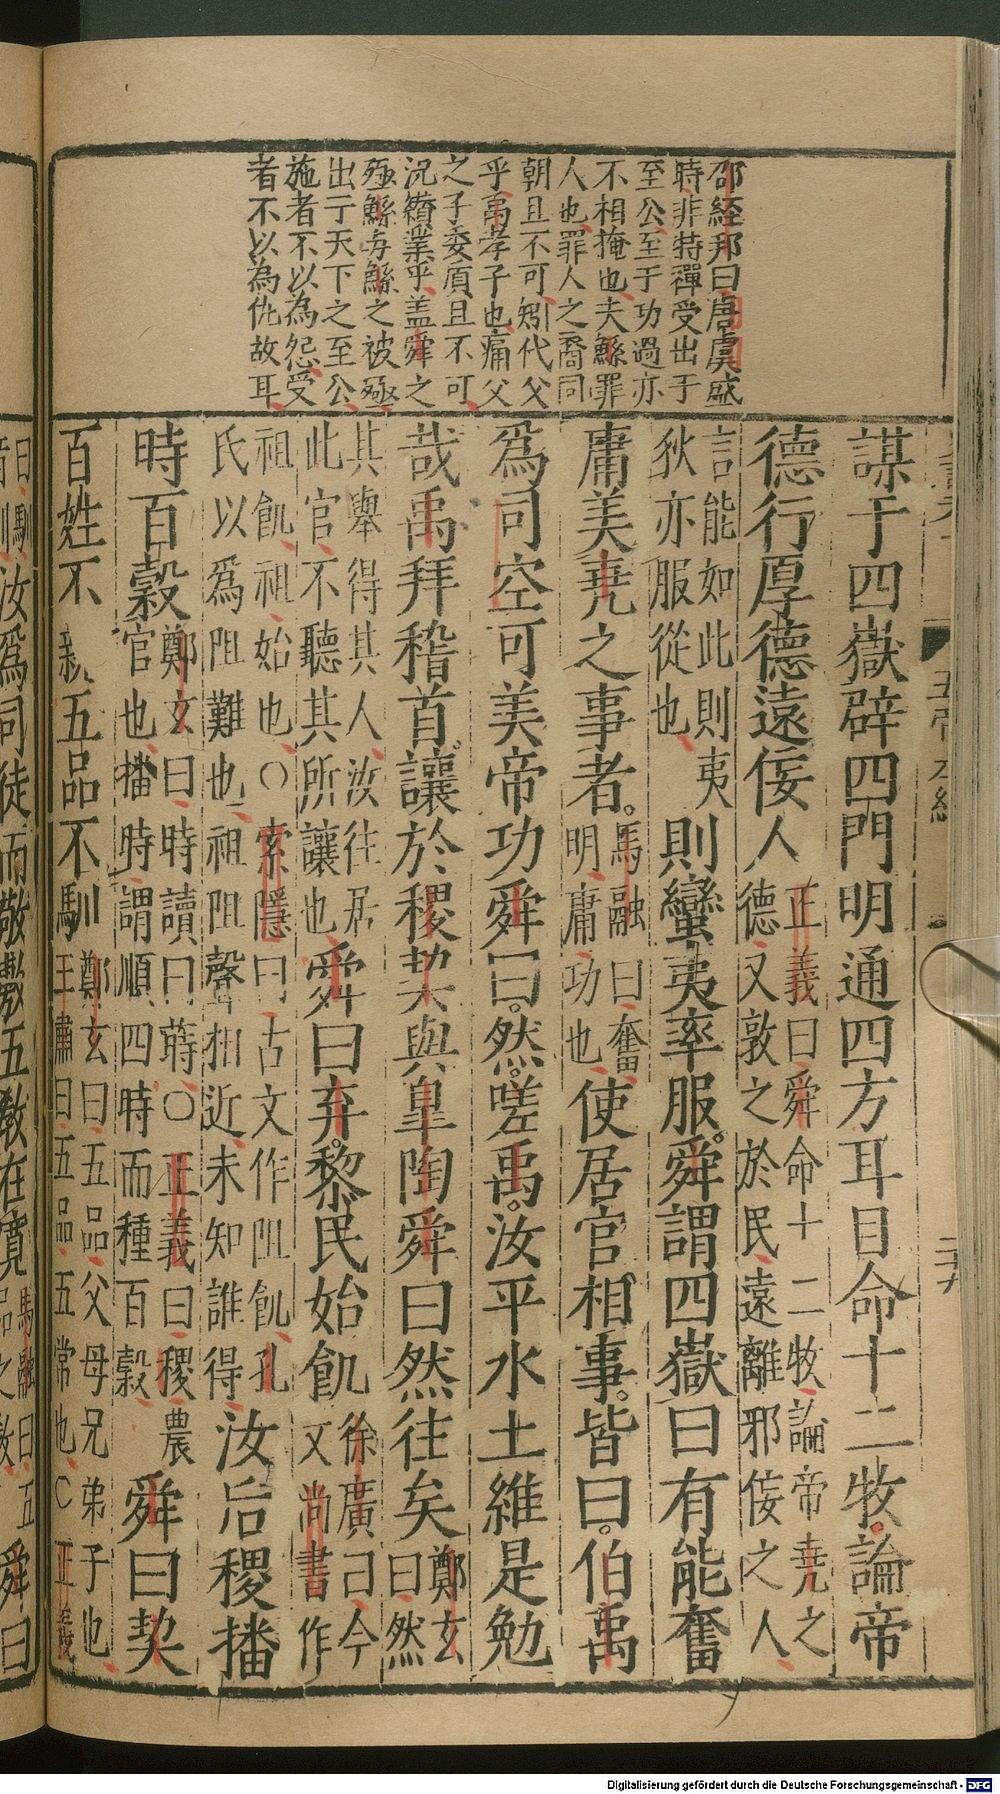 邵經邦曰唐虞盛
時非特禪受出于
至公至于功過亦
不相掩也夫鯀罪
人也罪人之裔同
朝且不可矧代父
乎禹孝子也痛父
之子委質且不可
況纘業乎盖舜之
殛鯀与鯀之被殛
出于天下之至公
施者不以為怨受
者不以為仇故耳
五帝本紀
二十九
謀于四嶽辟四門明通四方耳目命十二牧論帝
德行厚德遠佞人
正義曰舜命十二牧論帝堯之
德又敦之於民遠離邪佞之人
言能如此則夷
狄亦服從也
則蠻夷率服舜謂四嶽曰有能奮
庸美堯之事者
馬融曰奮
明庸功也
使居官相事皆曰伯禹
爲司空可美帝功舜曰然嗟禹汝平水土維是勉
哉禹拜稽首讓於稷契與皐陶舜曰然往矣
鄭玄
曰然
其舉得其人汝往居
此官不聽其所讓也
舜曰弃黎民始飢
徐廣曰今
文尚書作
祖飢祖始也○索隱曰古文作阻飢孔
氏以爲阻難也祖阻聲相近未知誰得
汝后稷播
時百穀
鄭玄曰時讀曰蒔○正義曰稷農
官也播時謂順四時而種百穀
舜曰契
百姓不親五品不馴
鄭玄曰五品父母兄弟子也
王肅曰五品五常也○正義
曰馴
音訓
汝爲司徒而敬敷五教在寬
馬融曰五
品之教
舜曰
Digitalisierung gefördert durch die Deutsche Forschungsgemeinschaft - DFG